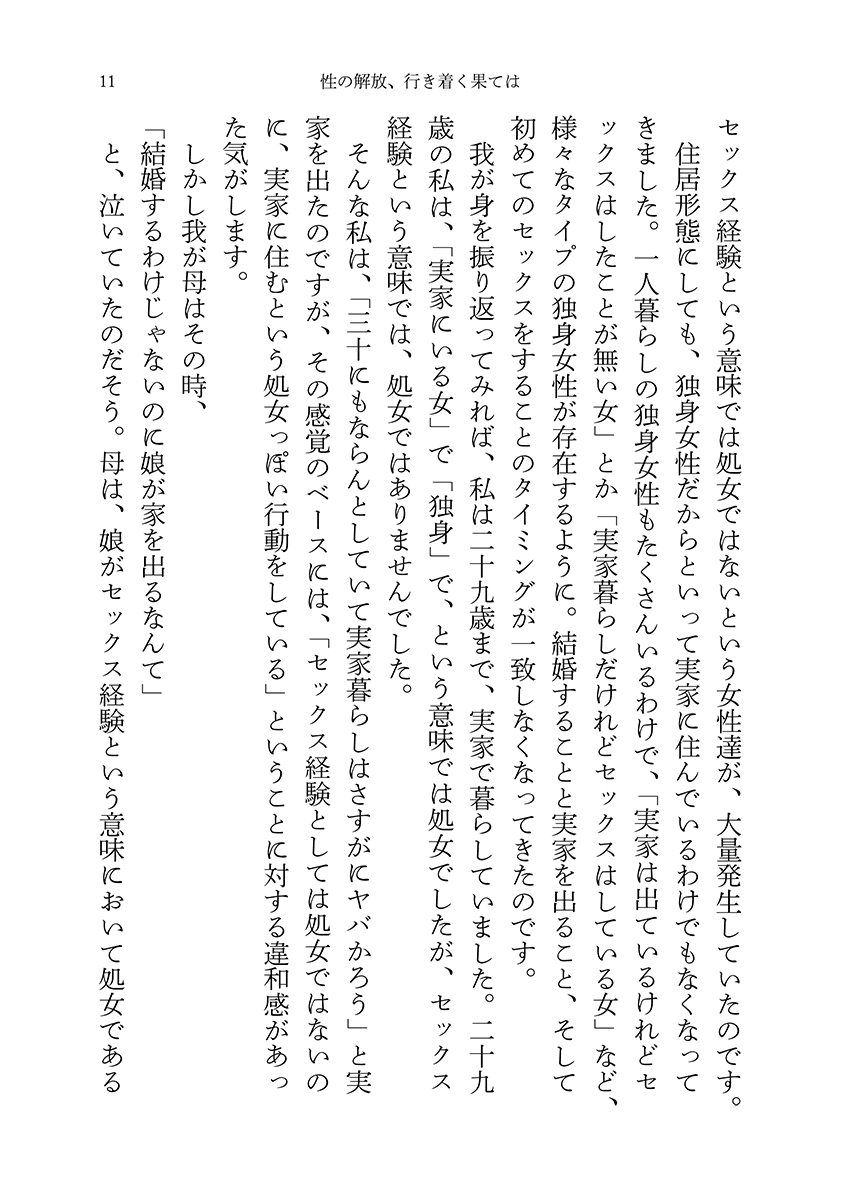 11
性の解放、行き着く果ては
セックス経験という意味では処女ではないという女性達が、大量発生していたのです。
住居形態にしても、独身女性だからといって実家に住んでいるわけでもなくなって
きました。一人暮らしの独身女性もたくさんいるわけで、「実家は出ているけれどセ
ックスはしたことが無い女」とか「実家暮らしだけれどセックスはしている女」など、
様々なタイプの独身女性が存在するように。結婚することと実家を出ること、そして
初めてのセックスをすることのタイミングが一致しなくなってきたのです。
我が身を振り返ってみれば、私は二十九歳まで、実家で暮らしていました。二十九
歳の私は、「実家にいる女」で「独身」で、という意味では処女でしたが、セックス
経験という意味では、処女ではありませんでした。
そんな私は、「三十にもならんとしていて実家暮らしはさすがにヤバかろう」と実
家を出たのですが、その感覚のベースには、「セックス経験としては処女ではないの
に、実家に住むという処女っぽい行動をしている」ということに対する違和感があっ
た気がします。
しかし我が母はその時、
「結婚するわけじゃないのに娘が家を出るなんて」
と、泣いていたのだそう。母は、娘がセックス経験という意味において処女である